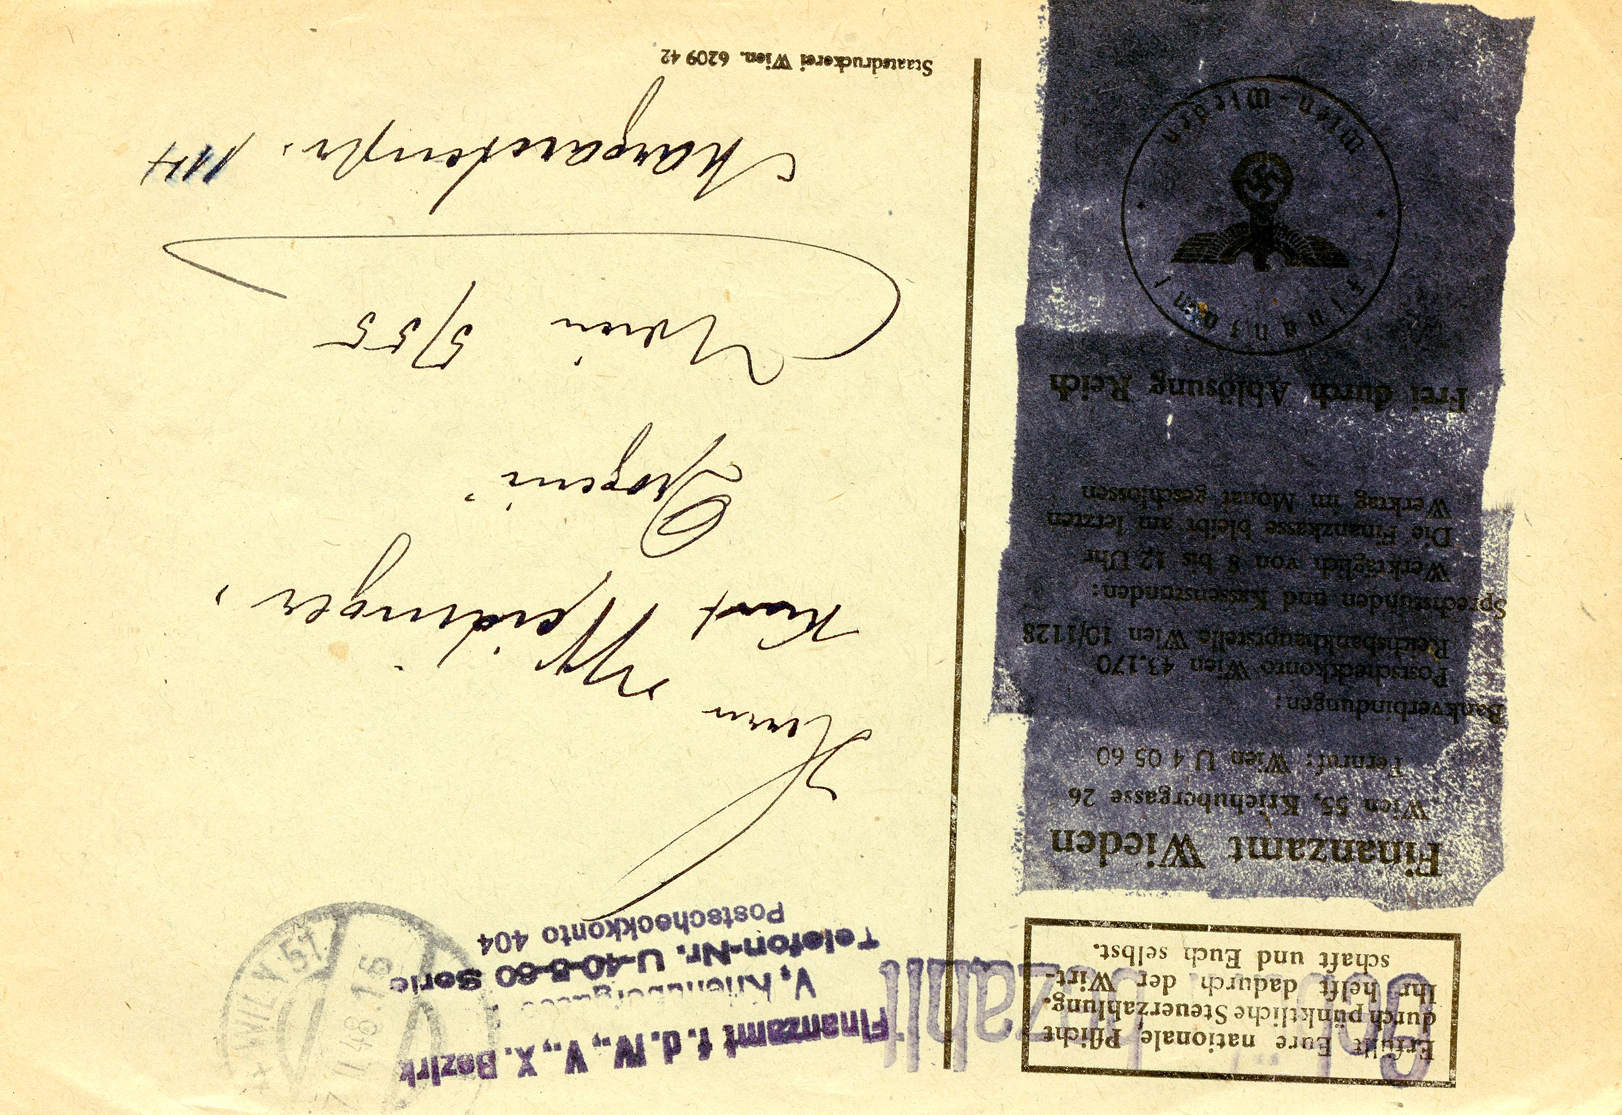 Erfüllt Eure nationale Pflicht
durch pünktliche Steuerzahlung.
Ihr helft dadurch der Wirt-
schaft und Euch selbst.
Finanzamt Wieden
Wien 55, Kriehubergasse 26
Fernruf: Wien U 4 05 60
Bankverbindungen:
Postscheckkonto Wien 43.170
Reichsbankhauptstelle Wien 10/1128
Sprechstunden und Kassenstunden:
Werktäglich von 8 bis 12 Uhr
Die Finanzkasse bleibt am letzten
Werktag im Monat geschlossen
Frei durch Ablösung Reich
Finanzamt
Wien-Wieden
Finanzamt f. d. IV., V., X. Bezirk
V, Kriehubergasse
Telefon-Nr. U-40-5-60 Serie
Postscheckkonto 404
Herrn
Weidinger,
Drogerie
Wien 5/55
Margaretenstr. 114
Staatsdruckerei Wien. 6209 42